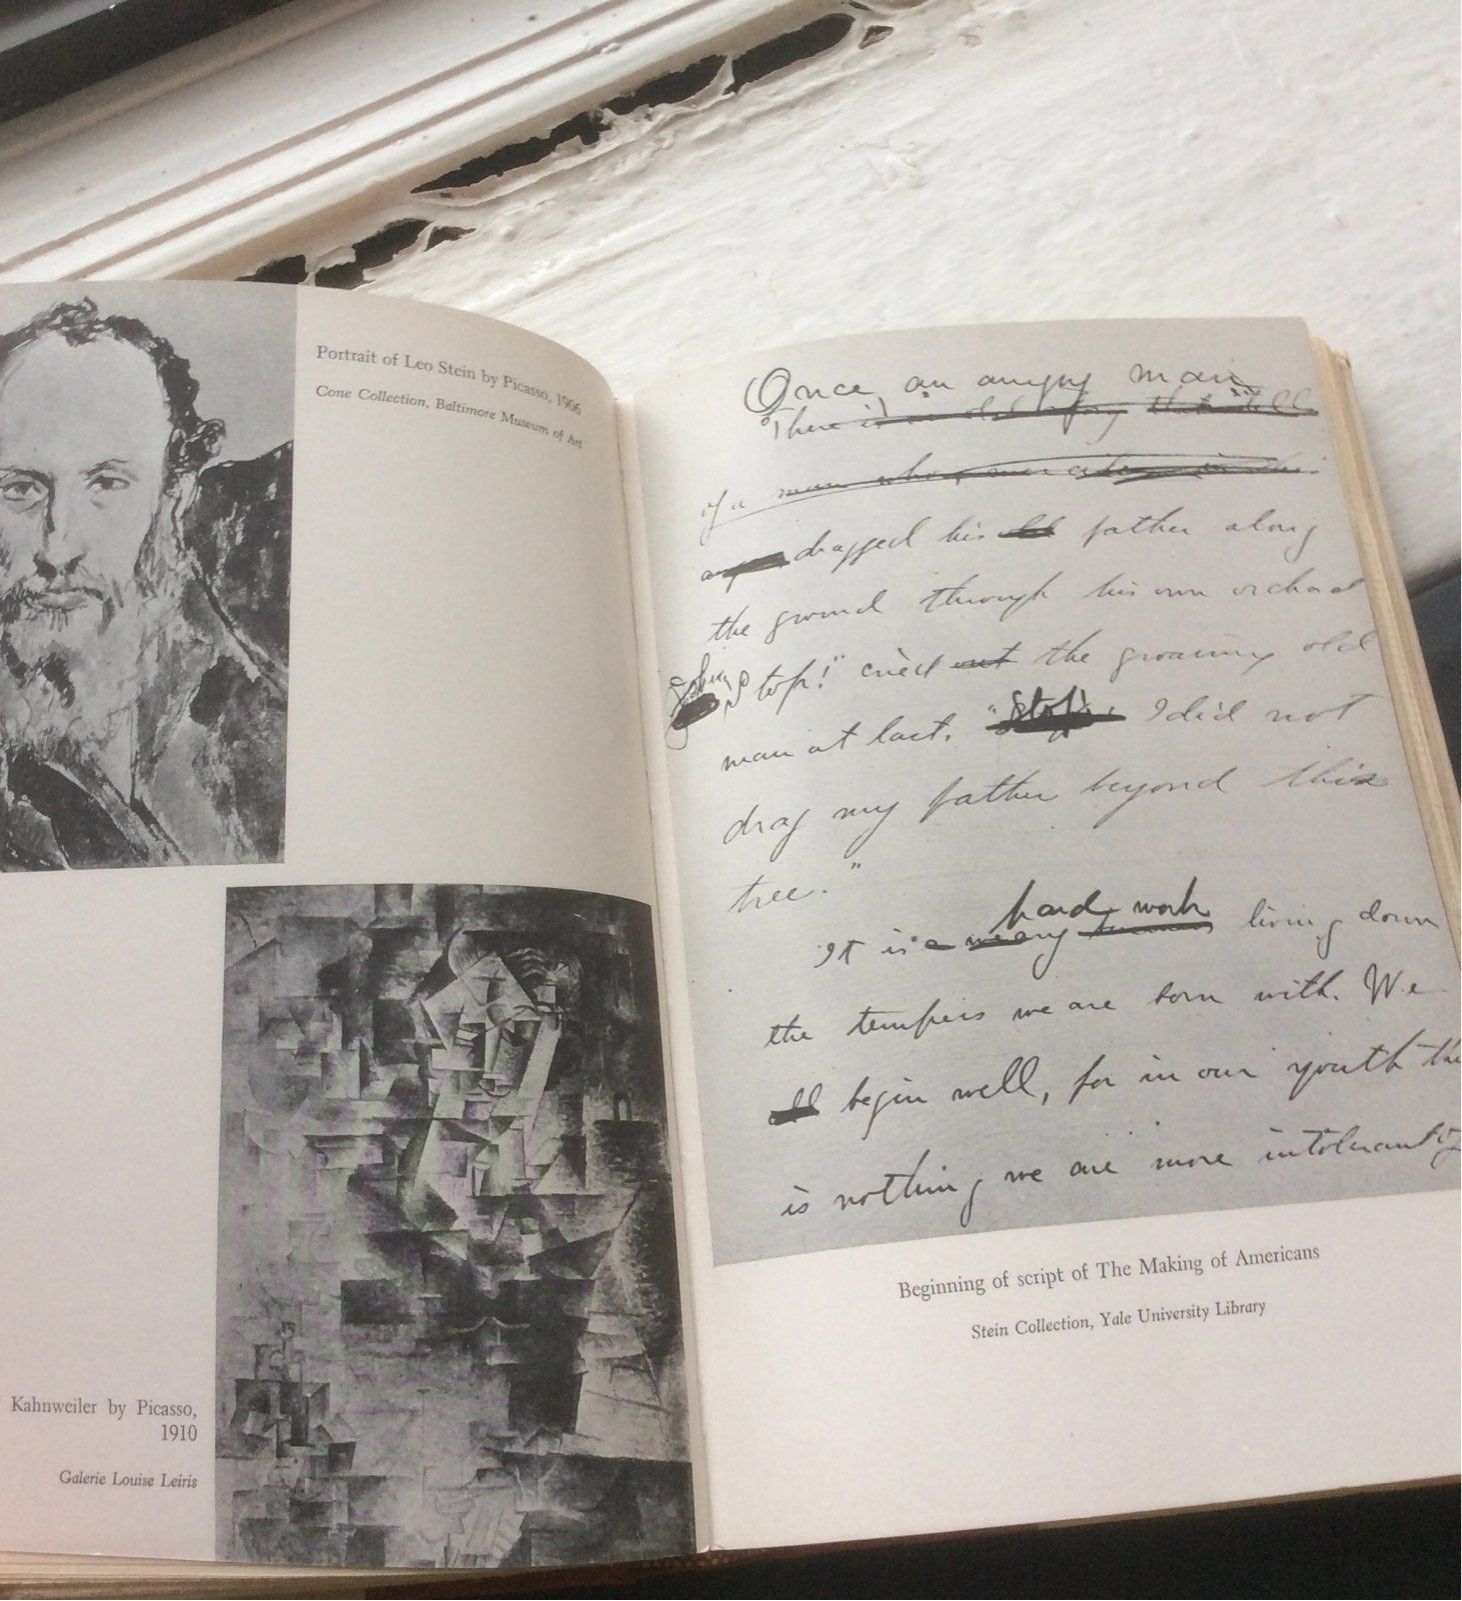 Portrait of Leo Stein by Picasso, 1906
Cone Collection, Baltimore Museum of Art
Kahnweiler by Picasso,
1910
Galerie Louise Leiris
Once, an angry man
There is an old story that tell
of a man who
dragged his old father along
the ground through his own orchard
Stop!" cried out the groaning old
man at last. "Stop! I did not
drag my father beyond this
tree."
hard work
It is a weary living down
the tempers we are born with. We
all begin well, for in our youth the
is nothing we are more intolerant
Beginning of script of The Making of Americans
Stein Collection, Yale University Library